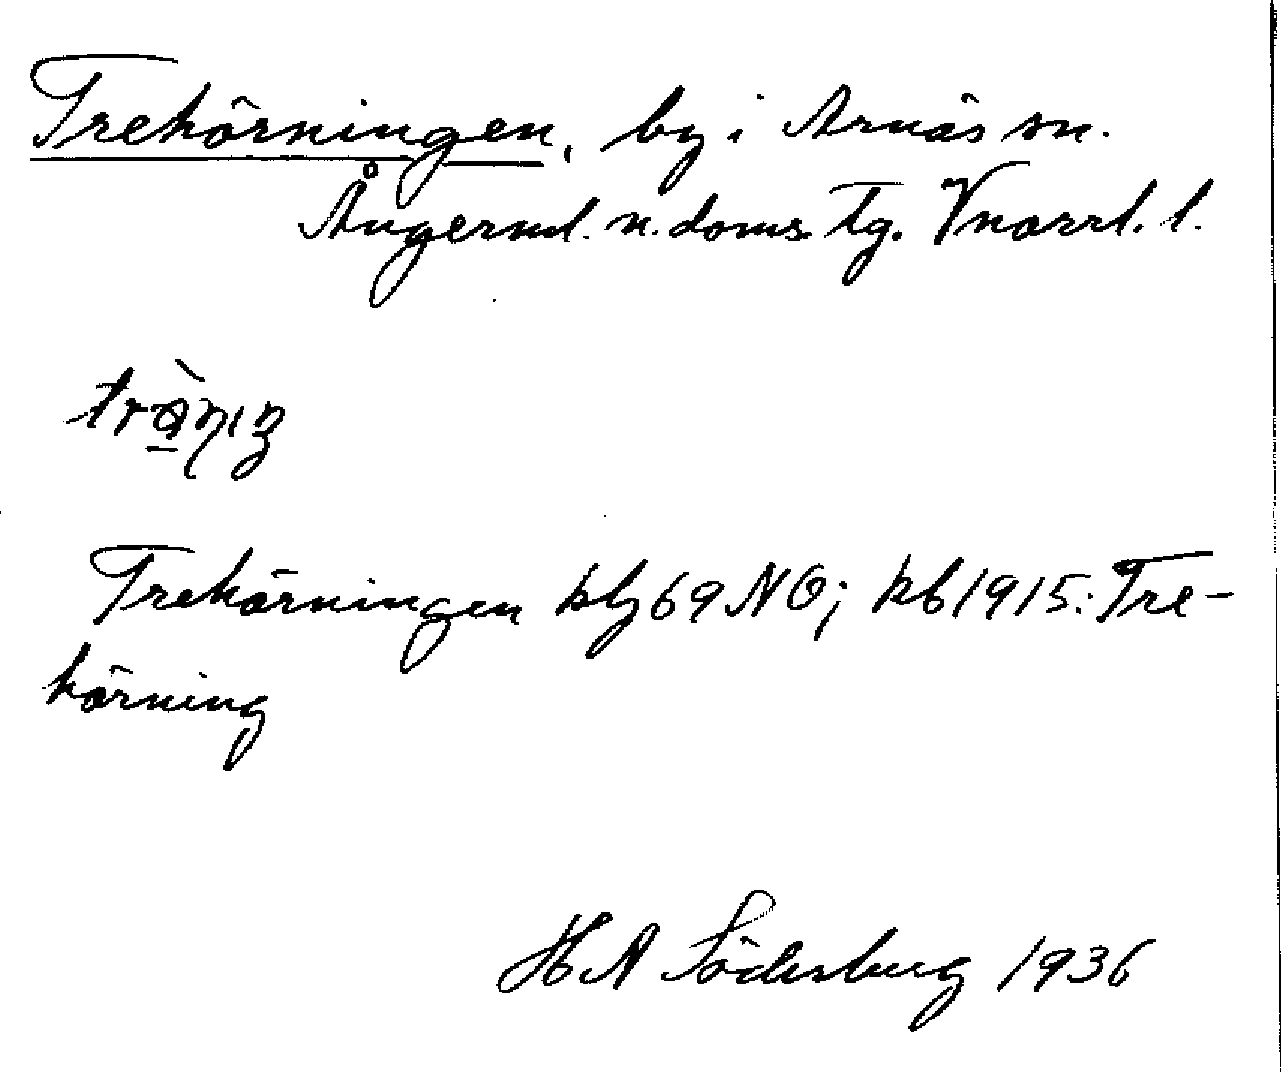 Trehörningen, by i Arnäs sn.
Ångerml. n. doms. tg. Vnorrl. l.
Trehörningen kbl 69 NO; kb 1915: Tre-
hörning
H A Söderberg 1936